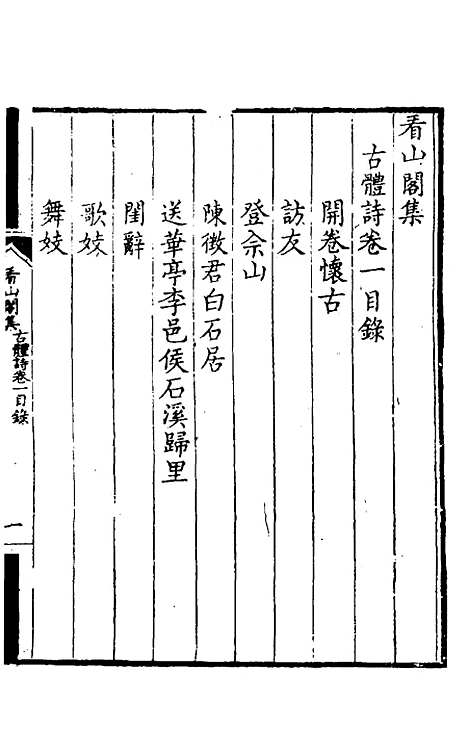 看山閣集
古體詩卷一目錄
開卷懷古
訪友
登佘山
陳徵君白石居
送華亭李邑侯石溪歸里
閨辭
歌妓
舞妓
看山閣集
古體詩卷一目錄
一